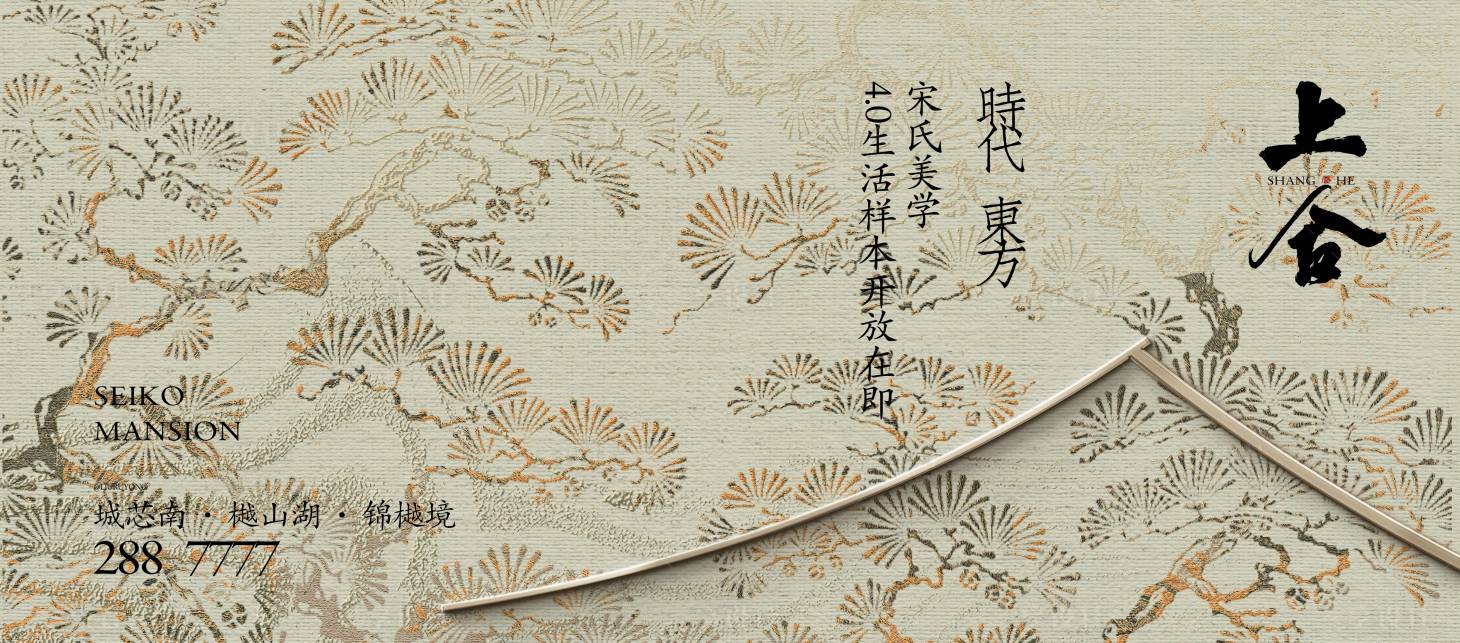 上合
SHANG HE
時代 東方
宋氏美学
4.0生活样本开放在即
SEIKO
MANSION
城芯南·樾山湖·锦樾境
288 7777